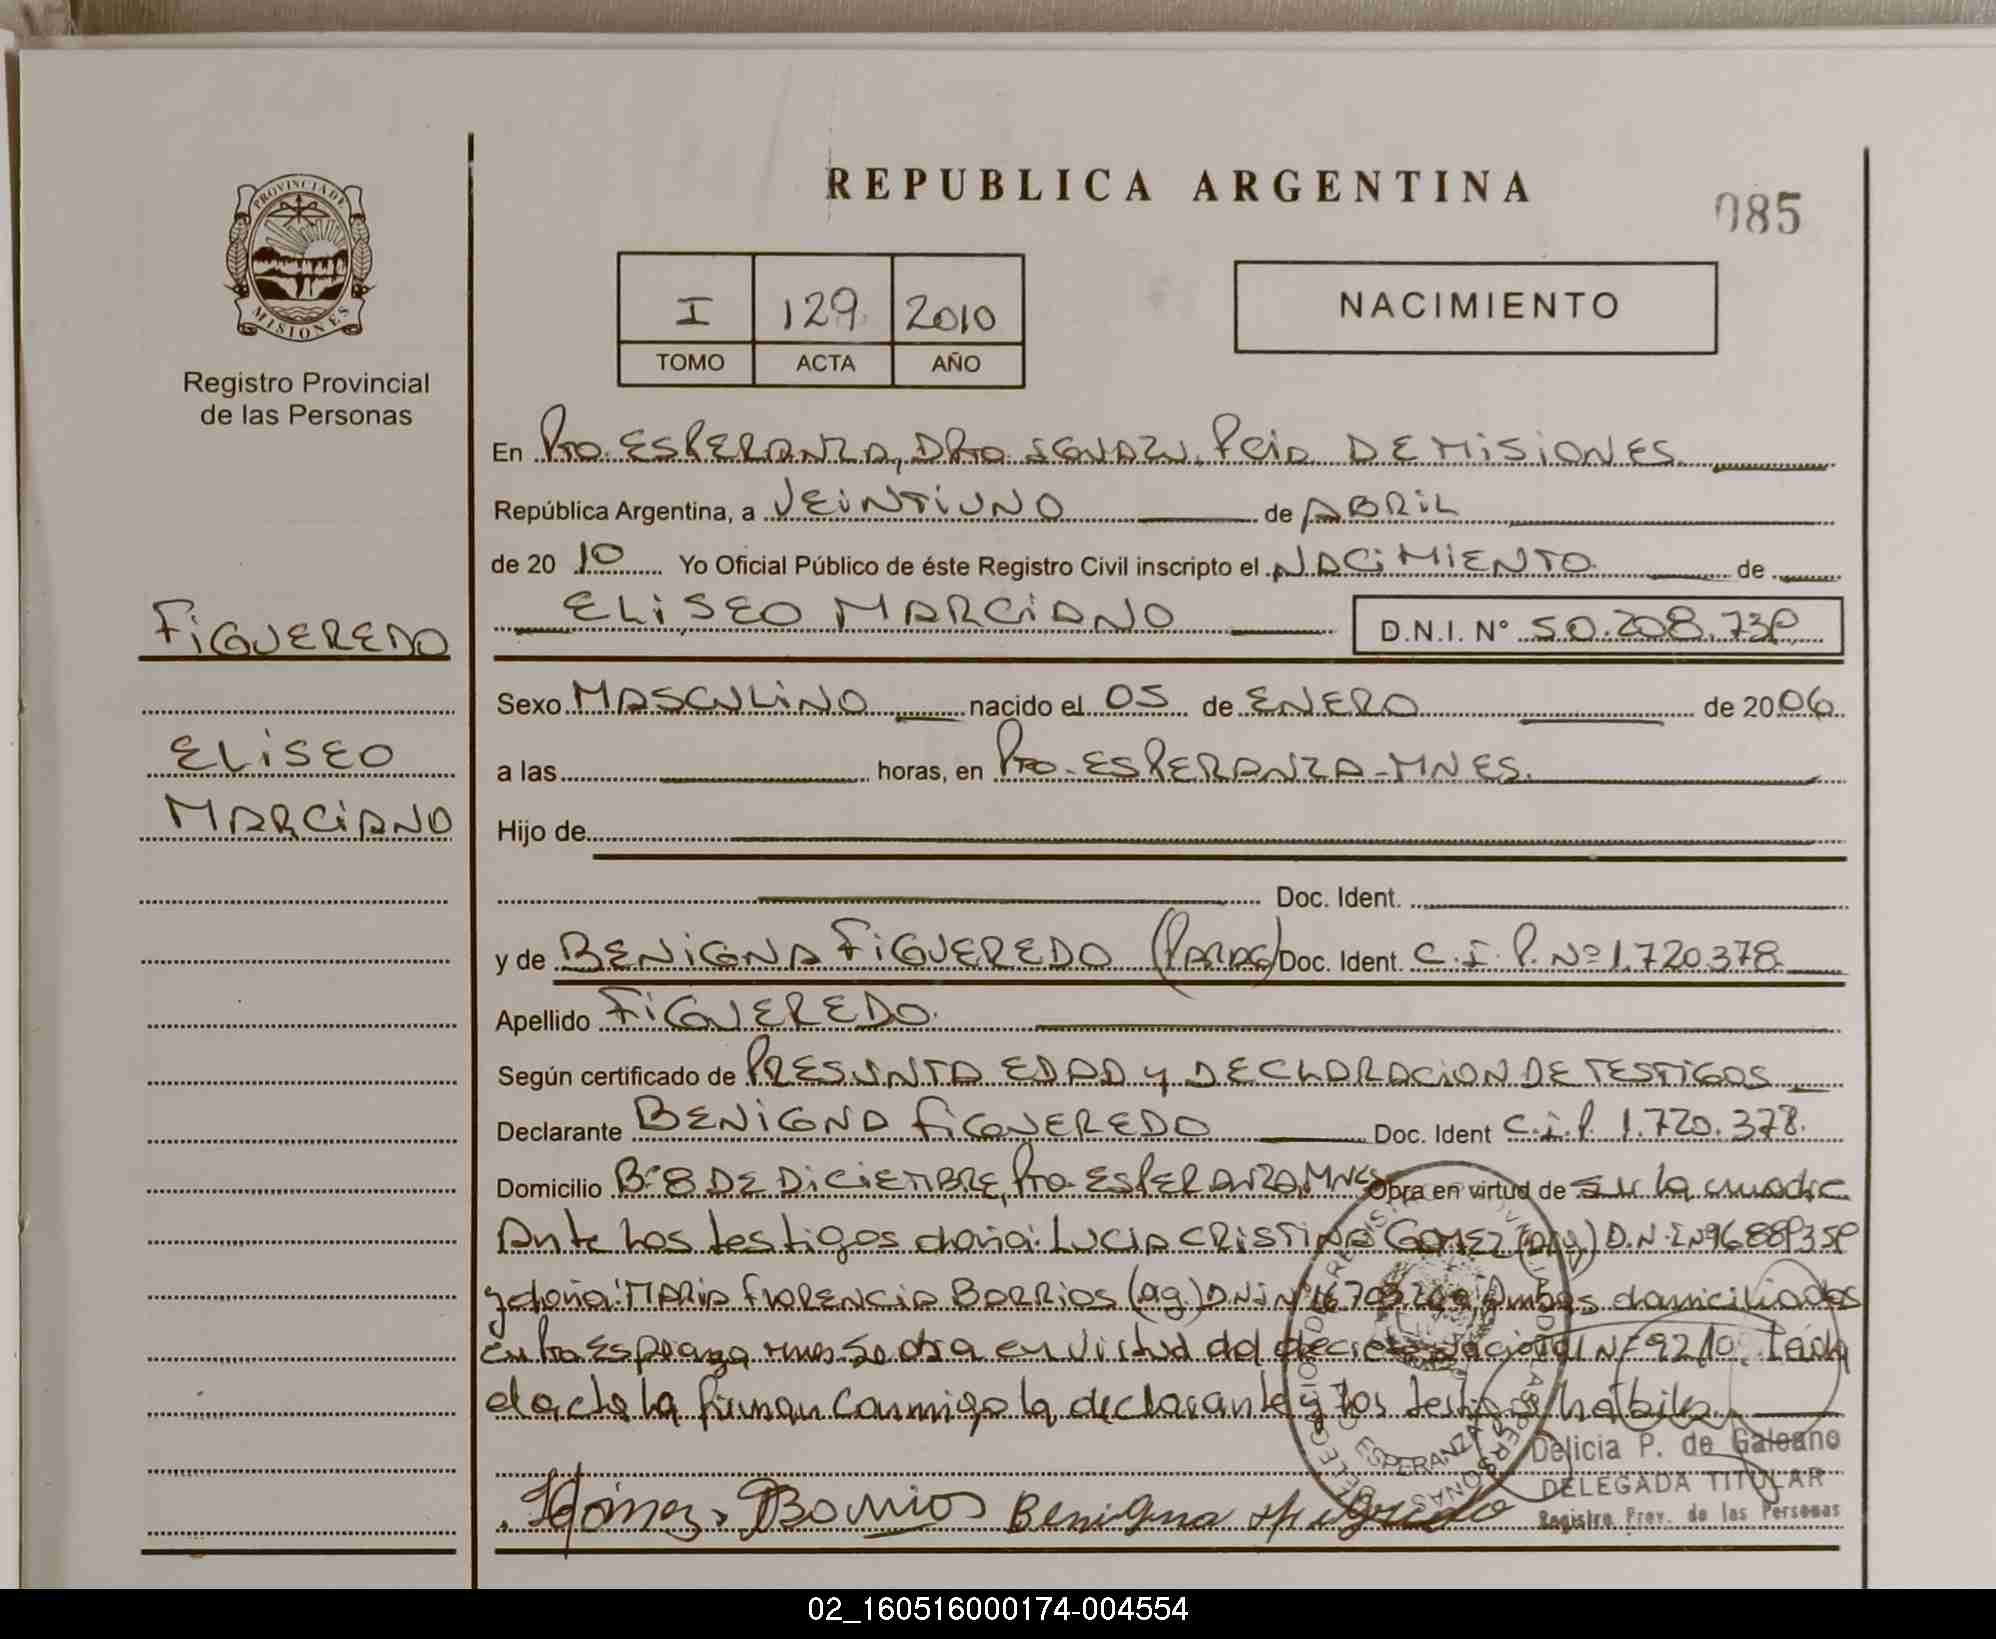 REPUBLICA ARGENTINA
085
PROVINCIA DE
MISIONES
Registro Provincial
de las Personas
I 129 2010
TOMO ACTA AÑO
NACIMIENTO
En Pto. ESPERANZA, DPto. IGUAZU, PCia DE MISIONES
República Argentina, a VEINTIUNO de ABRIL
de 20 10 Yo Oficial Público de éste Registro Civil inscripto el NACIMIENTO de
ELISEO MARCIANO D.N.I. N° 50.208.739
FIGUEREDO
ELISEO
MARCIANO
Sexo MASCULINO nacido el 05 de ENERO de 2006
a las horas, en Pto. ESPERANZA-MNES.
Hijo de
Doc. Ident.
y de BENIGNA FIGUEREDO (PARAG) Doc. Ident. C.I.P. Nº 1.720.378
Apellido FIGUEREDO
Según certificado de PRESUNTA EDAD y DECLARACION DE TESTIGOS
Declarante BENIGNA FIGUEREDO Doc. Ident C.I.P. 1.720.378.
Domicilio Bº 8 DE DICIEMBRE, Pto. ESPERANZA, MNES Obra en virtud de
Ante los testigos doña: LUCIA CRISTINA GOMEZ
y doña: MARIA FLORENCIA BARRIOS (ag.) DNI Nº Ambos domiciliados
en Pto Esperanza mnes Se obra en virtud del decreto nacional Nº 92/10. Leida
el acta la firman conmigo la declarante y los testigos hábiles
Gómez Barrios Benigna Figueredo
Delicia P. de Galeano
DELEGADA TITULAR
Registro Prov. de las Personas
02_160516000174-004554